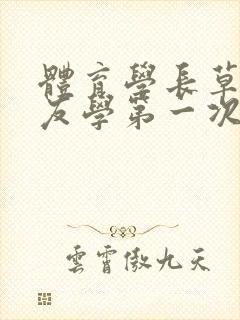 體育學長草
友學第一次
雲霄傲九天